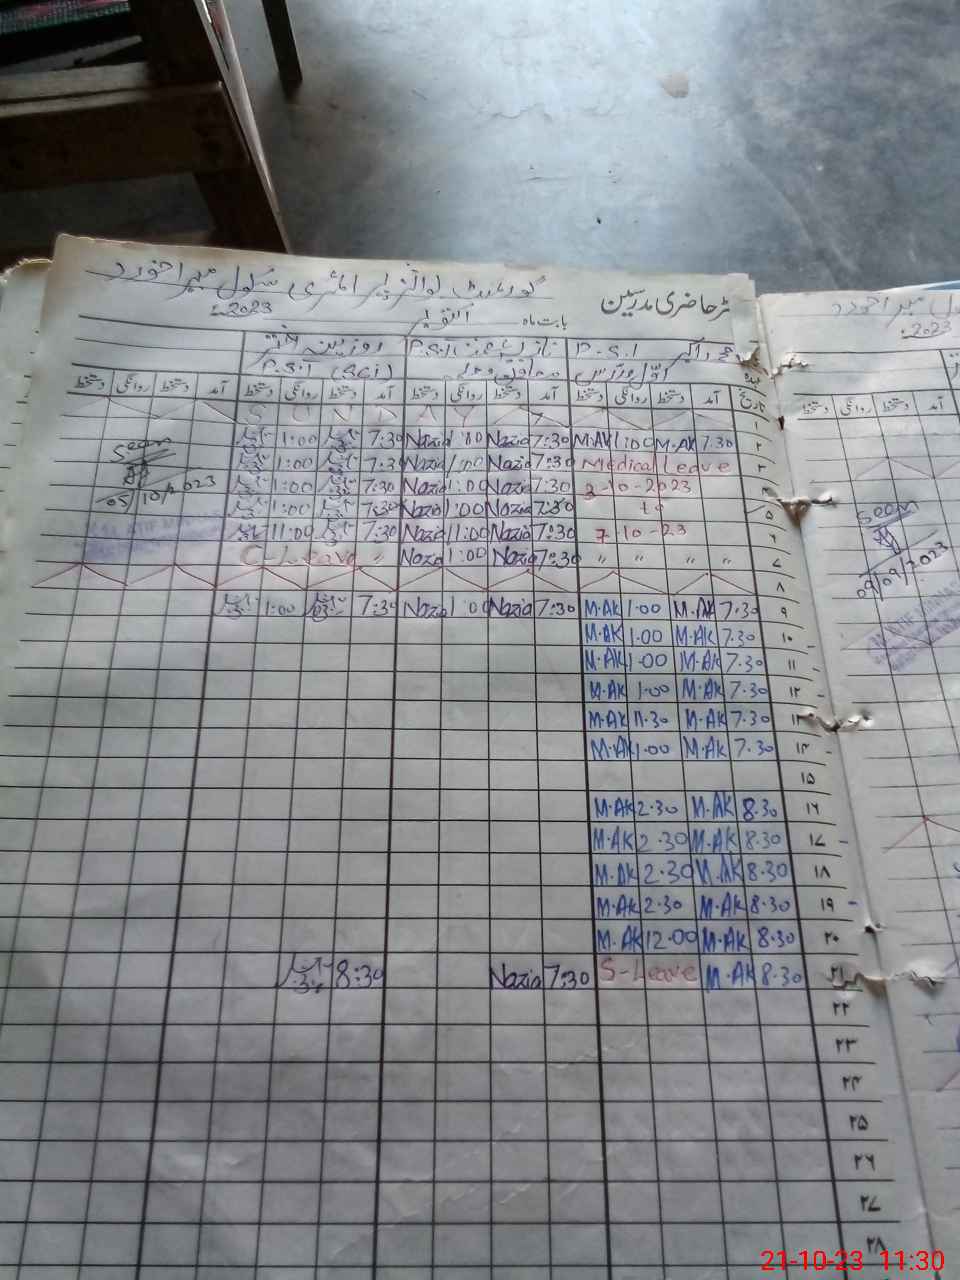 گورنمنٹ لوئر پرائمری سکول میرا خورد
رجسٹر حاضری مدرسین
بابت ماہ اکتوبر 2023ء
محمد اکبر P.S.T
P.S.T
P.S.T (Sci)
تاریخ آمد دستخط روانگی دستخط آمد دستخط روانگی دستخط آمد دستخط روانگی دستخط آمد دستخط روانگی دستخط
۱ S U N D A Y
۲ 7.30 M.AK 1:00 M.AK 7:30 Nazia 1:00 Nazia 7:30 1:00
۳ Medical Leave 7:30 Nazia 1:00 Nazia 7:30 1:00
۴ 3-10-2023 7:30 Nazia 1:00 Nazia 7:30 1:00
۵ to 7:30 Nazia 1:00 Nazia 7:30 1:00
۶ 7-10-23 7:30 Nazia 1:00 Nazia 7:30 1:00
۷ " " " " 7:30 Nazia 1:00 Nazia " C-Leave
۸
۹ 7.30 M.AK 1.00 M.AK 7:30 Nazia 1:00 Nazia 7:30 1:00
۱۰ 7.30 M.AK 1.00 M.AK
۱۱ 7.30 M.AK 1.00 M.AK
۱۲ 7.30 M.AK 1.00 M.AK
۱۳ 7.30 M.AK 11.30 M.AK
۱۴ 7.30 M.AK 1.00 M.AK
۱۵
۱۶ 8.30 M.AK 2.30 M.AK
۱۷ 8.30 M.AK 2.30 M.AK
۱۸ 8.30 M.AK 2.30 M.AK
۱۹ 8.30 M.AK 2.30 M.AK
۲۰ 8.30 M.AK 12.00 M.AK
۲۱ 8.30 M.AK S-Leave 7:30 Nazia 8:30
۲۲
۲۳
۲۴
۲۵
۲۶
۲۷
۲۸
Seen
05/10/2023
میرا خورد
2023ء
آمد دستخط روانگی دستخط
Seen
09/09/2023
21-10-23 11:30